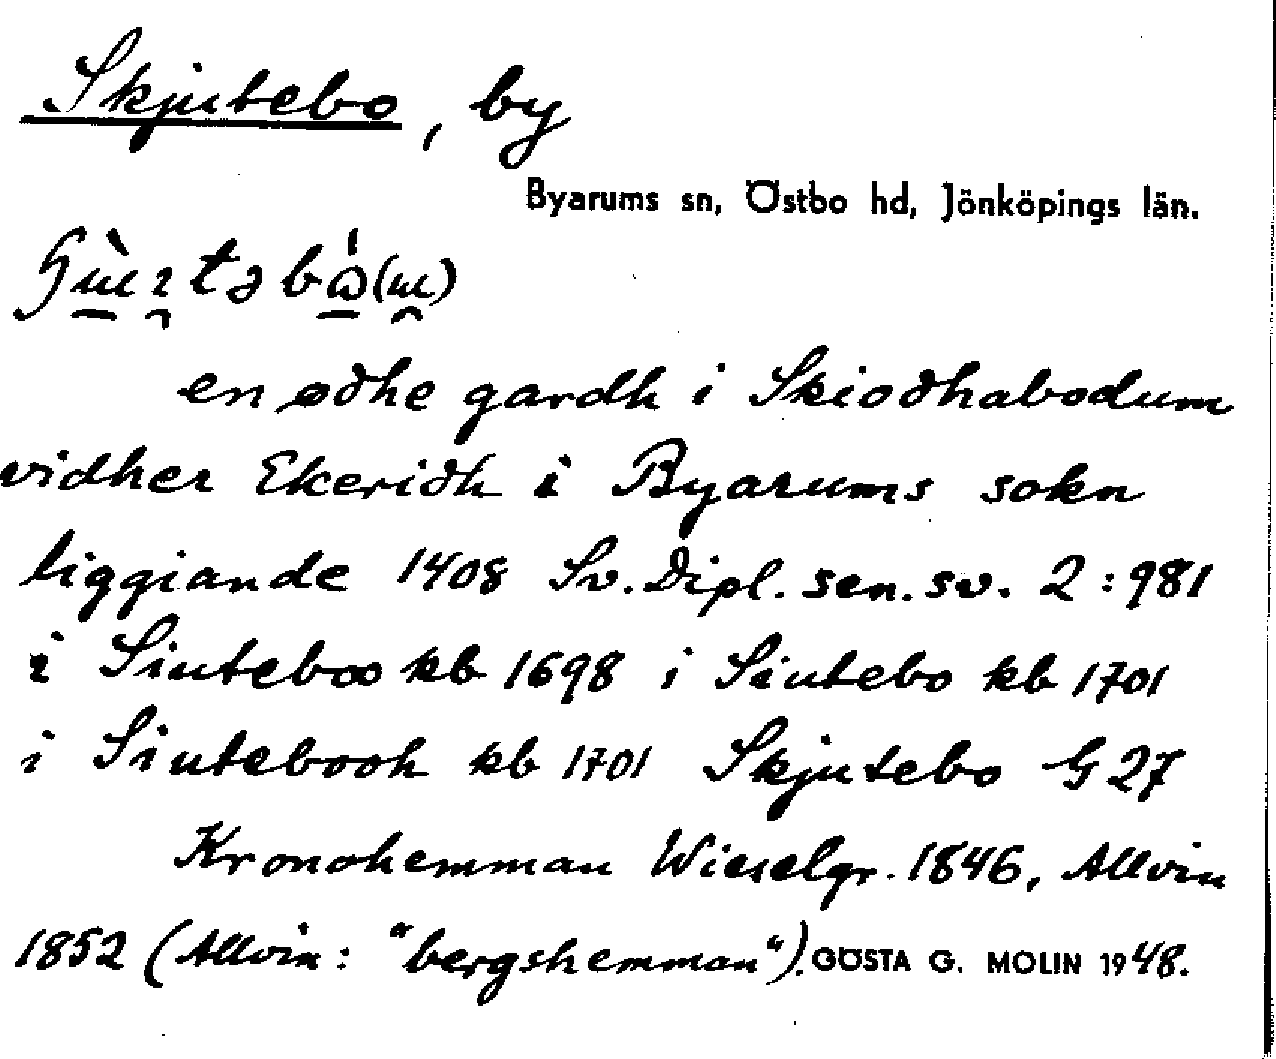 Skjutebo, by
Byarums sn, Östbo hd, Jönköpings län.
en ødhe gardh i Skiodhabodum
vidher Ekeridh i Byarums sokn
liggiande 1408 Sv. Dipl. sen. sv. 2:981
i Siuteboo kb 1698 i Siutebo kb 1701
i Siutebooh kb 1701 Skjutebo G 27
Kronohemman Wieselgr. 1846, Allvin
1852 (Allvin: "bergshemman"). GÖSTA G. MOLIN 1948.